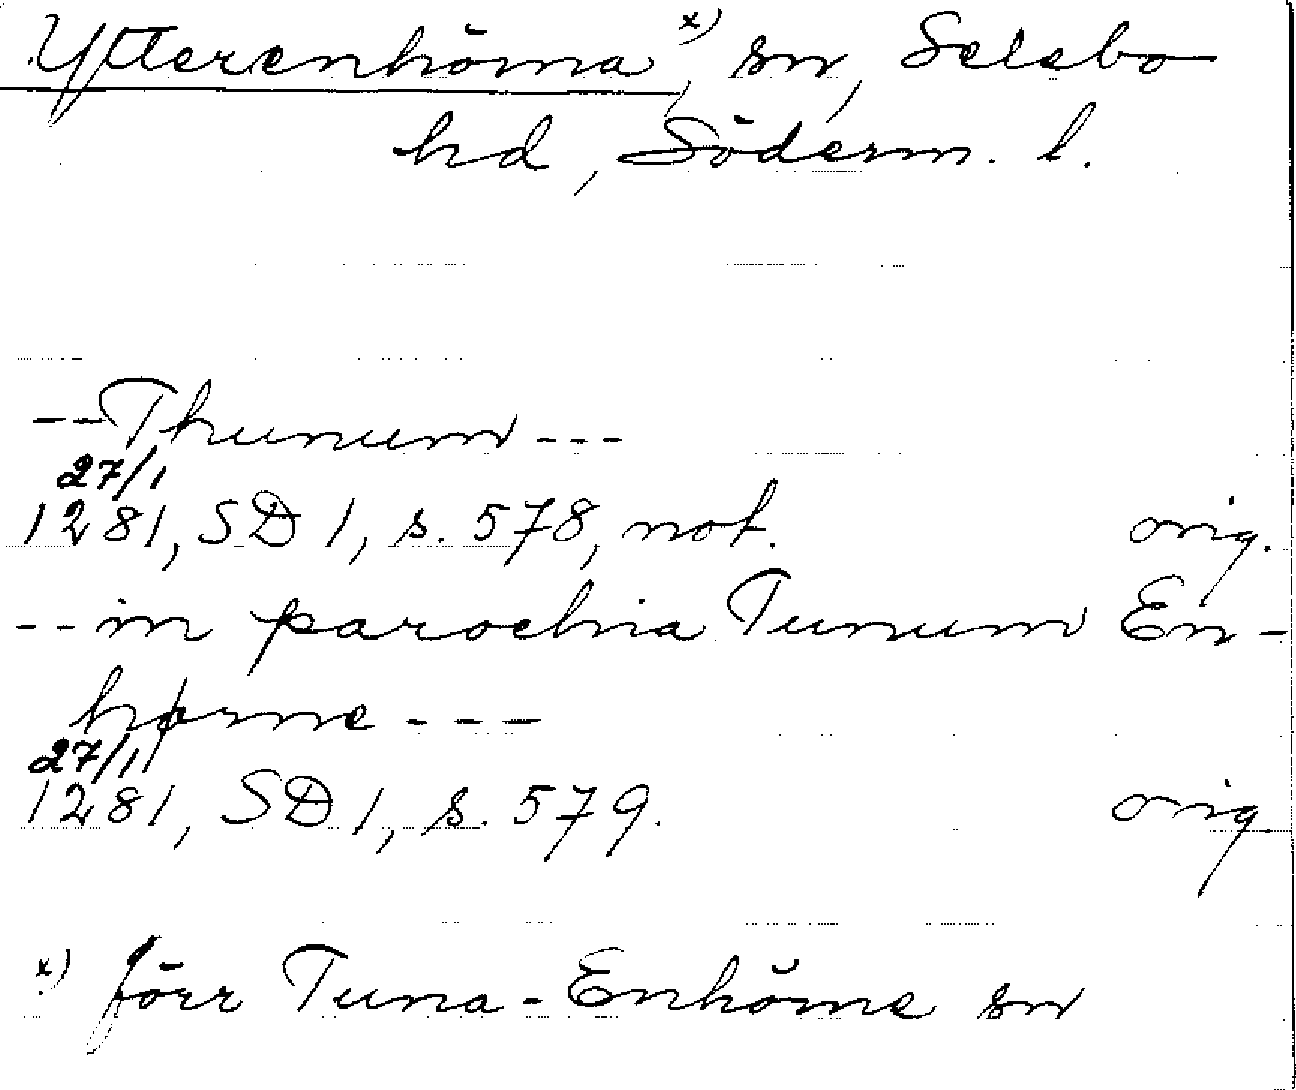 Ytterenhörna x), sn, Selebo
hd, Söderm. l.
--Thunum---
27/1
1281, SD 1, s. 578, not. orig.
--in parochia Tunum En-
hørne---
27/1
1281, SD 1, s. 579. orig
x) förr Tuna-Enhörne sn